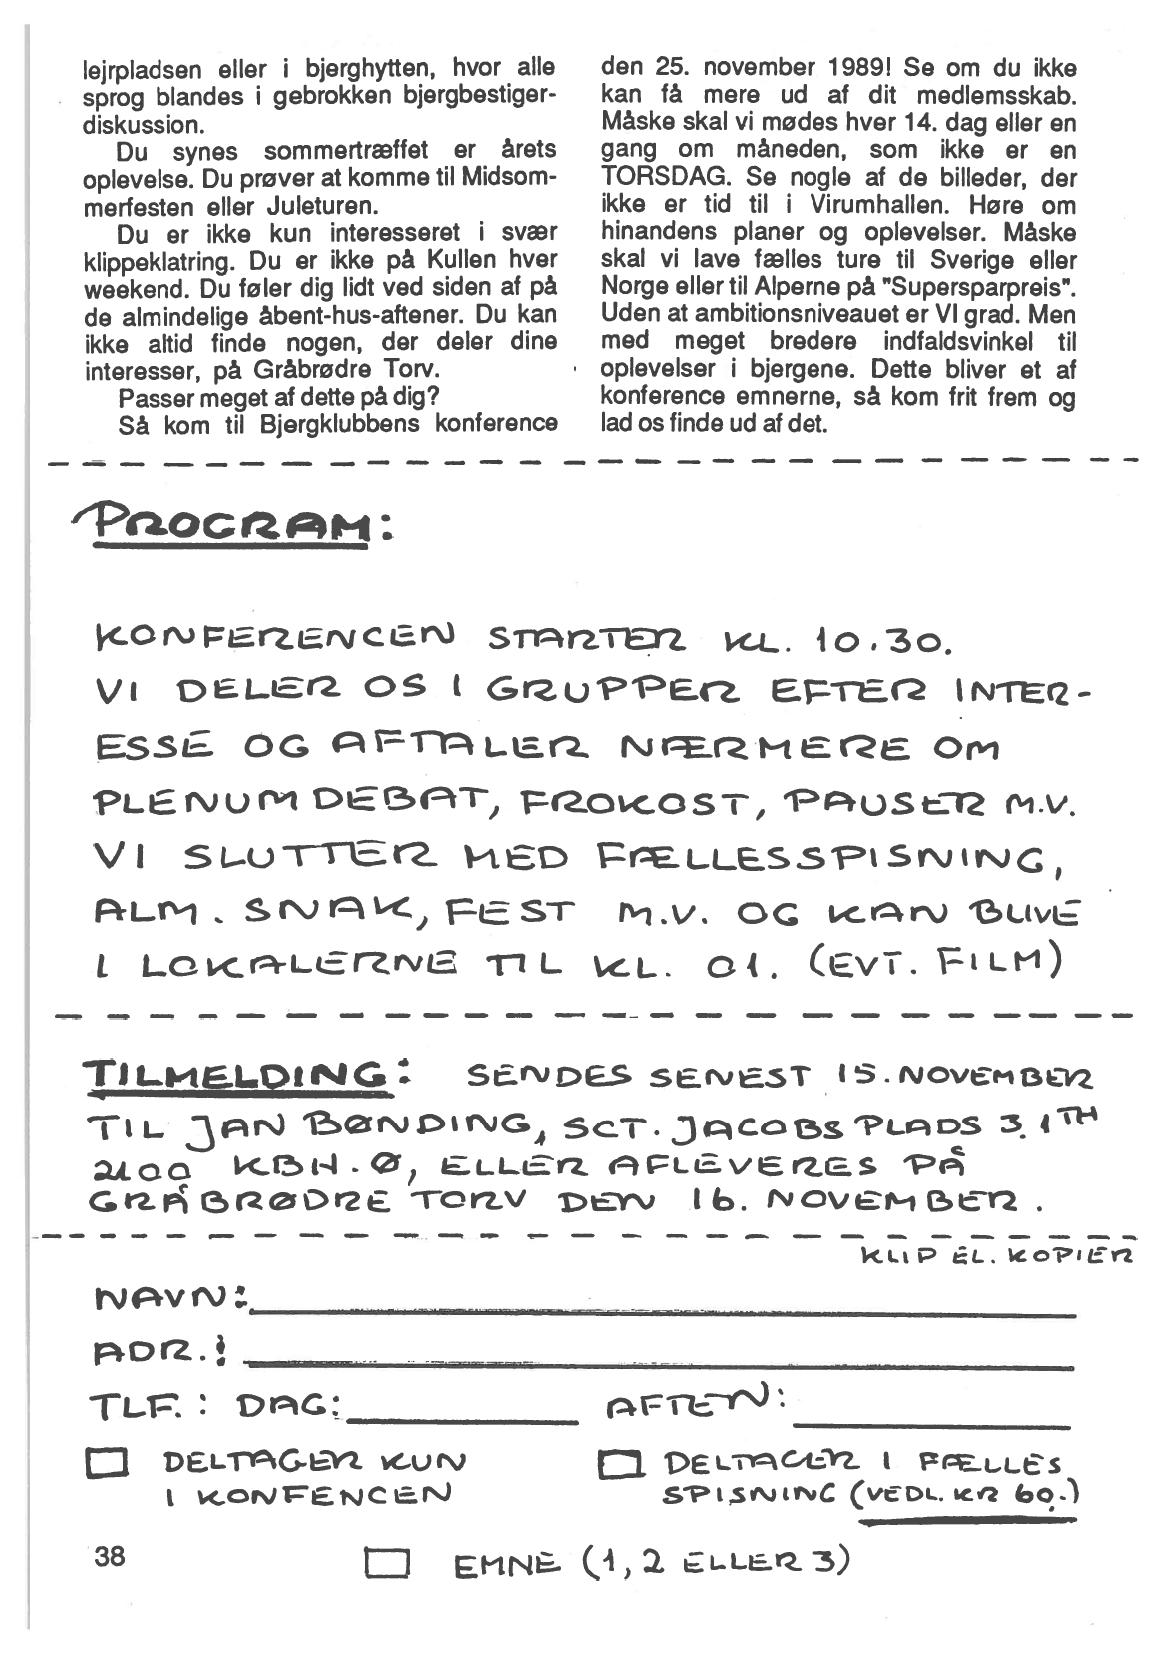 lejrpladsen eller i bjerghytten, hvor alle
sprog blandes i gebrokken bjergbestiger-
diskussion.
Du synes sommertræffet er årets
oplevelse. Du prøver at komme til Midsom-
merfesten eller Juleturen.
Du er ikke kun interesseret i svær
klippeklatring. Du er ikke på Kullen hver
weekend. Du føler dig lidt ved siden af på
de almindelige åbent-hus-aftener. Du kan
ikke altid finde nogen, der deler dine
interesser, på Gråbrødre Torv.
Passer meget af dette på dig?
Så kom til Bjergklubbens konference
den 25. november 1989! Se om du ikke
kan få mere ud af dit medlemsskab.
Måske skal vi mødes hver 14. dag eller en
gang om måneden, som ikke er en
TORSDAG. Se nogle af de billeder, der
ikke er tid til i Virumhallen. Høre om
hinandens planer og oplevelser. Måske
skal vi lave fælles ture til Sverige eller
Norge eller til Alperne på "Supersparpreis".
Uden at ambitionsniveauet er VI grad. Men
med meget bredere indfaldsvinkel til
oplevelser i bjergene. Dette bliver et af
konference emnerne, så kom frit frem og
lad os finde ud af det.
PROGRAM:
KONFERENCEN STARTER KL. 10.30.
VI DELER OS I GRUPPER EFTER INTER-
ESSE OG AFTALER NÆRMERE OM
PLENUMDEBAT, FROKOST, PAUSER M.V.
VI SLUTTER MED FÆLLESSPISNING,
ALM. SNAK, FEST M.V. OG KAN BLIVE
I LOKALERNE TIL KL. 01. (EVT. FILM)
TILMELDING: SENDES SENEST 15. NOVEMBER
TIL JAN BØNDING, SCT. JACOBS PLADS 3. 1TH
2100 KBH. Ø, ELLER AFLEVERES PÅ
GRÅBRØDRE TORV DEN 16. NOVEMBER.
KLIP EL. KOPIER
NAVN:
ADR.:
TLF.: DAG: AFTEN:
DELTAGER KUN
I KONFENCEN
DELTAGER I FÆLLES
SPISNING (VEDL. KR 60.-)
38
EMNE (1, 2 ELLER 3)